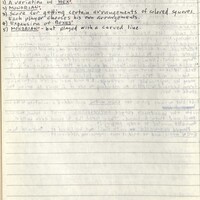 1) A variation of HEX.
2) MONDRIAN.
3) Score for getting certain arrangements of colored squares.
Each player chooses his own arrangements.
4) Expansion of
5) MONDRIAN - but played with a curved line.